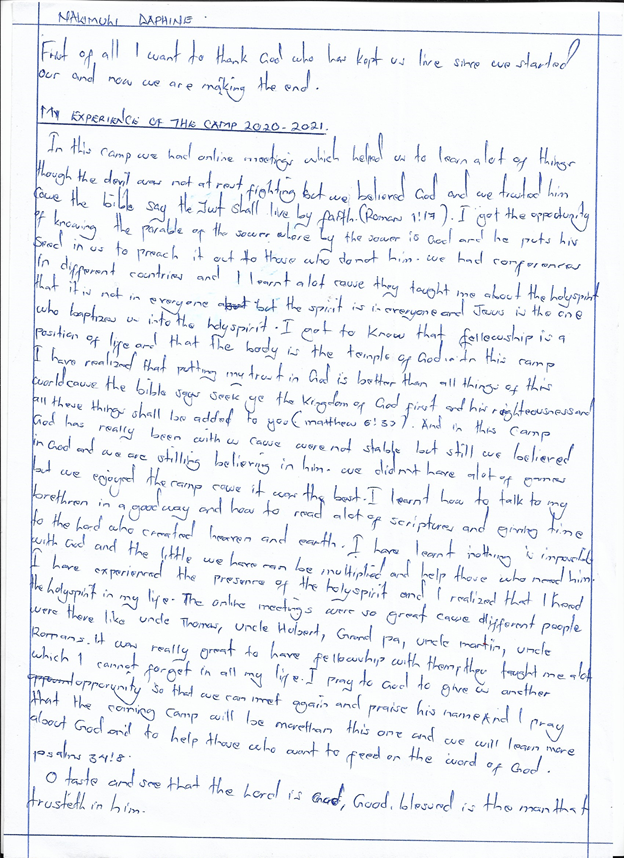 NAKIMULI DAPHINE.
Frist of all I want to thank God who has kept us live since we started
our and now we are making the end.
MY EXPERIENCE OF THE CAMP 2020-2021.
In this camp we had online meetings which helped us to learn alot of things
though the devil was not at rest fighting but we believed God and we trusted him
cause the bible say the Just shall live by faith. (Roman 1:17). I got the opportunity
of knowing the parable of the sower where by the sower is God and he puts his
seed in us to preach it out to those who do not him. we had conferences
in different countries and I learnt alot cause they taught me about the holyspirit
that it is not in everyone but the spirit is in everyone and Jesus is the one
who baptizes us into the holyspirit. I got to know that fellowship is a
position of life and that the body is the temple of God. In this camp
I have realized that putting my trust in God is better than all things of this
world cause the bible says seek ye the kingdom of God first and his righteousness and
all these things shall be added to you (matthew 6:33). And in this camp
God has really been with us cause were not stable but still we believed
in God and we are stilling believing in him. we didnt have alot of games
but we enjoyed the camp cause it was the best. I learnt how to talk to my
brethren in a good way and how to read alot of scriptures and giving time
to the Lord who created heaven and earth. I have learnt nothing is impossible
with God and the little we have can be multiplied and help those who need him.
I have experienced the presence of the holyspirit and I realized that I had
the holyspirit in my life. The online meetings were so great cause different people
were there like uncle Thomas, uncle Hubert, Grand pa, uncle martin, uncle
Romans. It was really great to have fellowship with them, they taught me alot
which I cannot forget in all my life. I pray to God to give us another
opporunity so that we can met again and praise his name. And I pray
that the coming camp will be morethan this one and we will learn more
about God and to help those who want to feed on the word of God.
psalms 34:8.
O taste and see that the Lord is God, Good. blessed is the man that
trusteth in him.